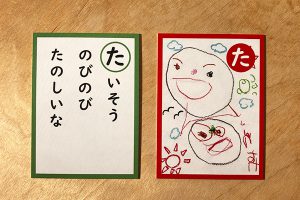 たいそう
のびのび
たのしいな
た